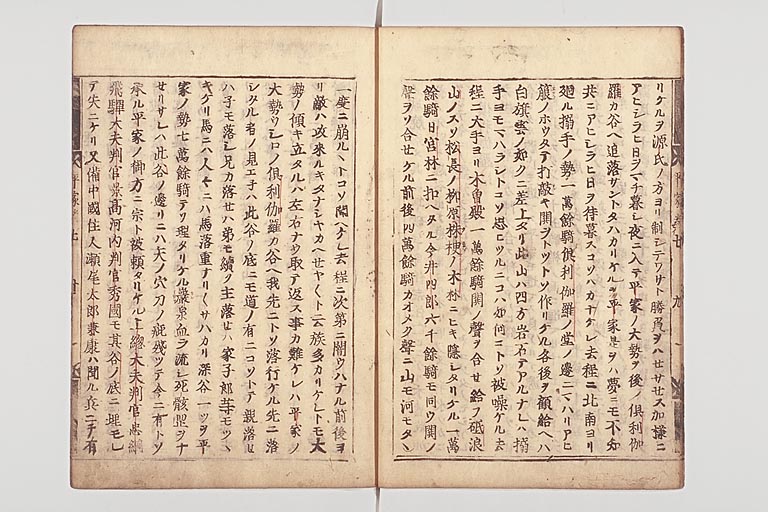 リケルヲ源氏ノ方ヨリ制シテアリサト勝負ヲハセサセス加様ニ
アヒシラヒ日ヲマチ暮レ夜ニ入テ平家ノ大勢ヲ後ノ倶利伽
羅カ谷ヘ追落サントタハカリケルヲ平家是ヲハ夢ニモ不知
共ニアヒシラヒ日ヲ待暮スコソハカナケレ去程ニ北南ヨリ
廻ル搦手ノ勢一萬餘騎倶利伽羅ノ堂ノ邊ニマハリアヒ
箙ノホウタテ打敲キ閧ヲトツト作リケル各後ヲ顧給ヘハ
白旗雲ノ如クニ差上タリ此山ハ四方岩石テアルナレハ搦
手ヨモマハラシトコソ思ヒツルニコハ如何ニトソ被噪ケル去
程ニ大手ヨリ木曽殿一萬餘騎閧ノ聲ヲ合セ給フ砥浪
山ノスソ松長ノ柳原茱萸ノ木林ニヒキ隱シタリケル一萬
餘騎日宮林ニ扣ヘタル今井四郎六千餘騎モ同ウ閧ノ
聲ヲソ合セケル前後四萬餘騎カオメク聲ニ山モ河モタヽ
一度ニ崩ルヽトコソ聞ヘケレ去程ニ次第ニ闇ウハナル前後ヨ
リ敵ハ攻來ルキタナシヤカヘセヤカヘセト云族多カリケレトモ大
勢ノ傾キ立タルハ左右ナウ取テ返ス事カ難ケレハ平家ノ
大勢ウシロノ倶利伽羅カ谷ヘ我先ニトソ落行ケル先ニ落
シタル者ノ見エネハ此谷ノ底ニモ道ノ有ニコソトテ親落セ
ハ子モ落シ兄カ落セハ弟モ續ク主落セハ家子郎等モツヽ
キケリ馬ニハ人人ニハ馬落重ナリ〱サハカリ深谷一ツヲ平
家ノ勢七萬餘騎テソ埋タリケル巖泉血ヲ流シ死骸岳ヲナ
セリサレハ此谷ノ邊リニハ矢ノ穴刀ノ疵殘ツテ今ニ有トソ
承ル平家ノ御方ニ宗ト被頼タリケル上總大夫判官忠綱
飛騨大夫判官景高河内判官秀國モ其谷ノ底ニ埋モレ
テ失ニケリ又備中國住人瀬尾太郎兼康ハ聞ル兵ニテ有
平家巻七